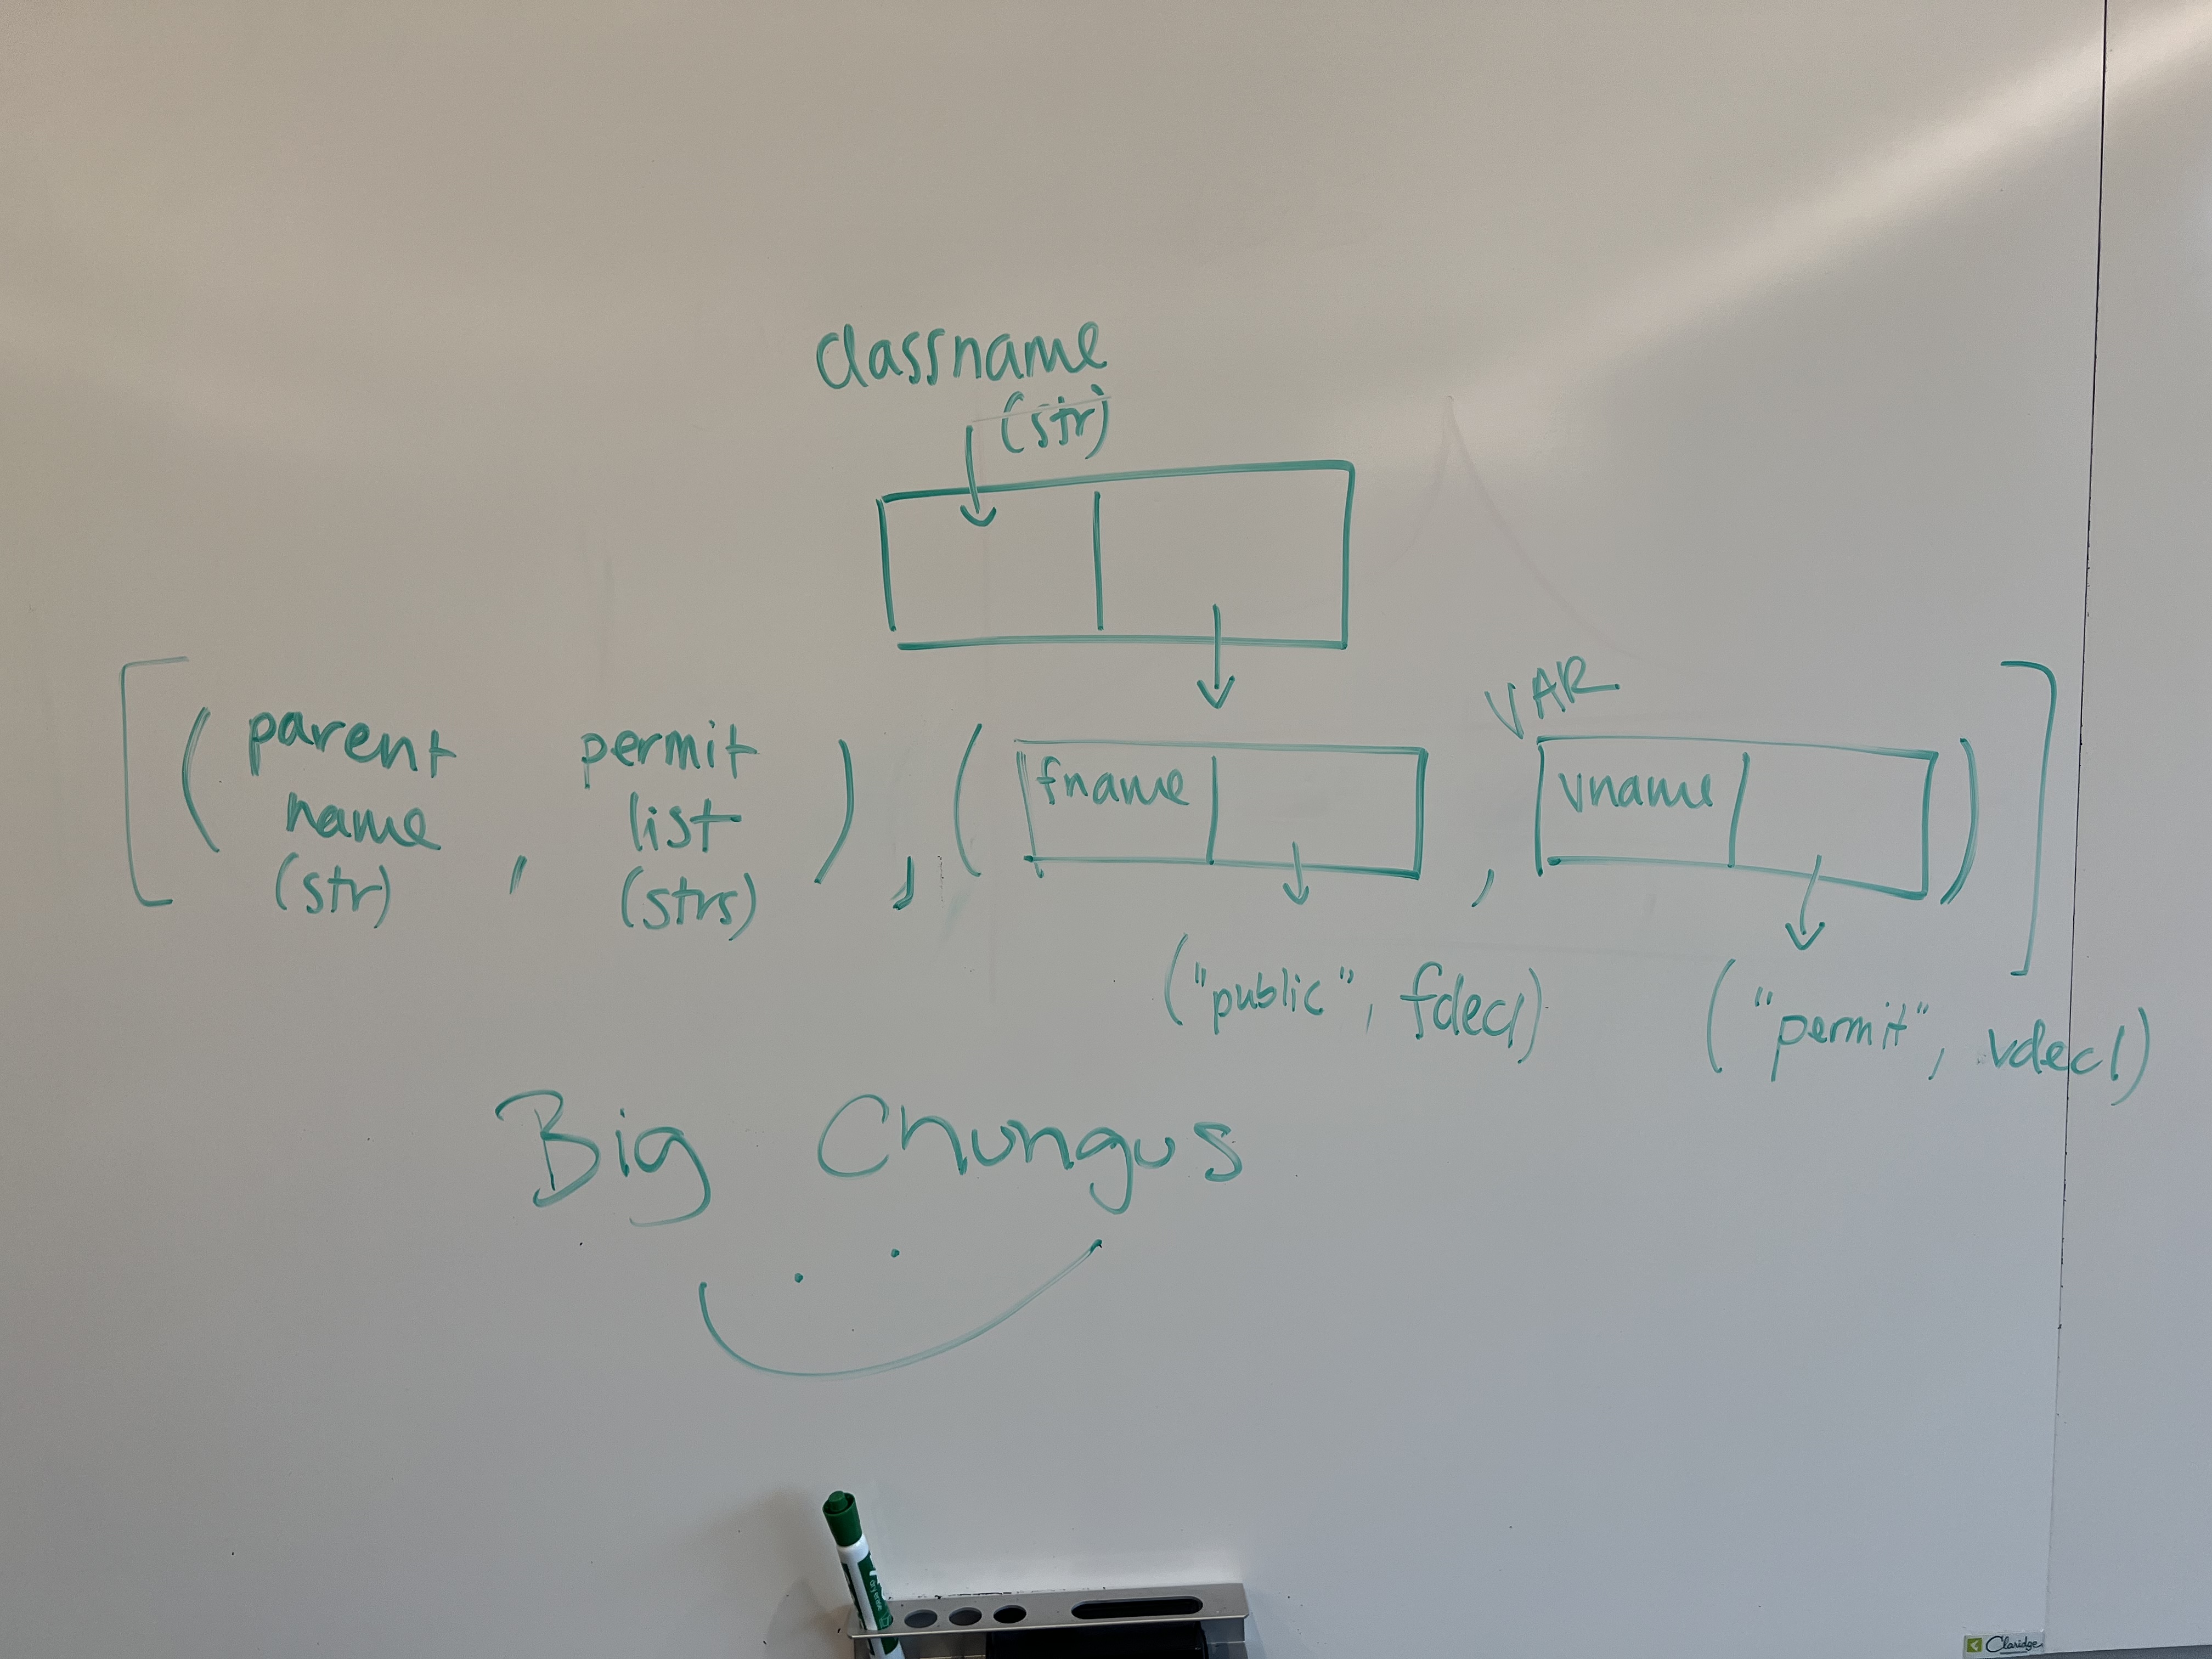 classname
(str)
VAR
[(parent name (str), permit list (strs)), (fname, vname)]
("public", fdecl)
("permit", vdecl)
Big Chungus
Claridge